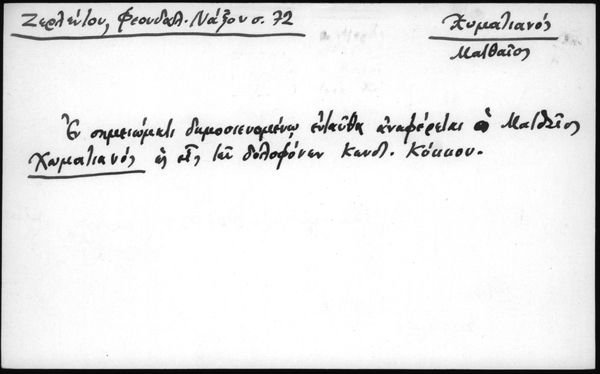 Ζερλέντου, Φεουδαλ. Νάξου σ. 72
Χυματιανός
Ματθαῖος
Ἐν σημειώματι δημοσιευομένῳ ἐνταῦθα ἀναφέρεται ὁ Ματθαῖος
Χωματιανός ὡς εἷς τῶν δολοφόνων Κωνστ. Κόκκου.